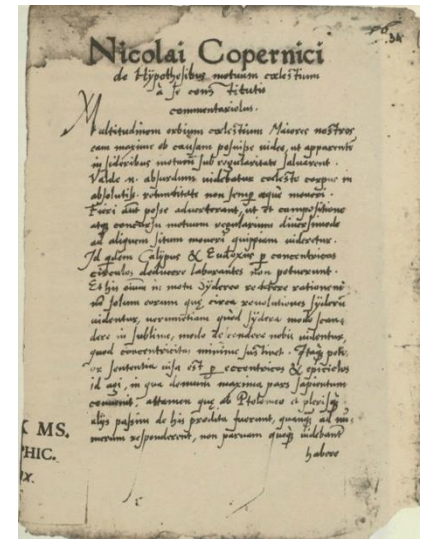 34
Nicolai Copernici
de Hÿpothesibus motuum cœlestium
à se constitutis
commentariolus.
Multitudinem orbium cœlestium Maiores nostros
eam maxime ob causam posuisse uideo, ut apparentē
in sideribus motum sub regularitate saluarent.
Valde .n. absurdum uidebatur cœleste corpus in
absolutiss. rotunditate non semp æque moueri.
Fieri aūt posse aduerterant, ut ēt compositione
atq concursu motuum regularium diuersimode
ad aliquem situm moueri quippiam uideretur.
Id qdem Calippus & Eudoxus p concentricos
circulos deducere laborantes non potuerunt.
Et his oium in motu Sydereo reddere rationem
nō solum eorum quę circa reuolutiones syderū
uidentur, uerumetiam quod sydera modo scan,
dere in sublime, modo descendere nobis uidentur,
quod concentricitas minime sustinet. Itaq poti,
or sententia uisa est p eccentricos & epiciclos
id agi, in qua demum maxima pars sapientum
conuenit, attamen quę à Ptolomeo et plerisq
alijs passim de his prodita fuerunt, quanq ad nu,
merum responderent, non paruam quoq uidebant
habere
X MS.
HIC.
X.